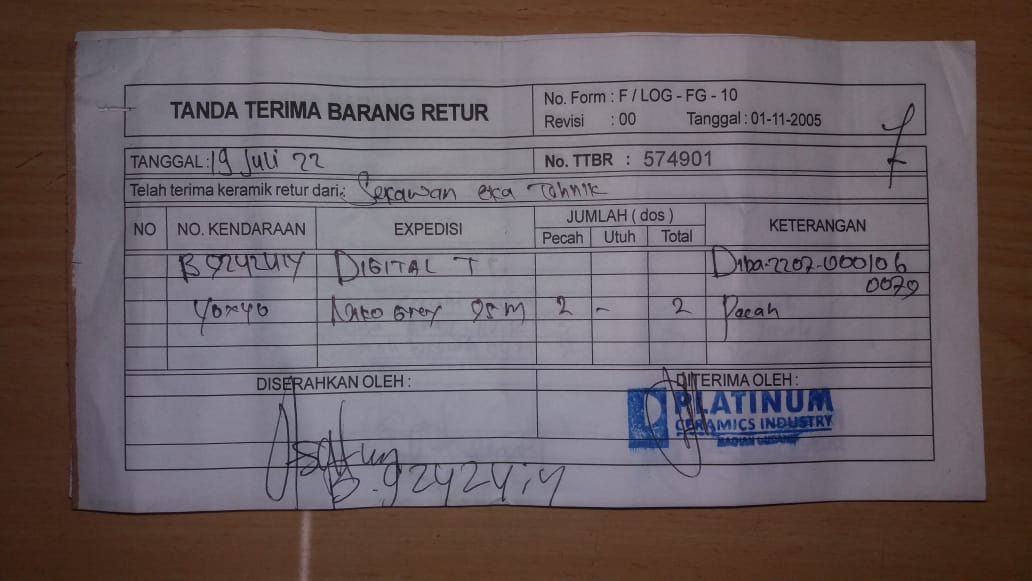 TANDA TERIMA BARANG RETUR
No. Form : F / LOG - FG - 10
Revisi : 00 Tanggal : 01-11-2005
TANGGAL : 19 Juli 22
No. TTBR : 574901
Telah terima keramik retur dari : Sekawan eka Tehnik
NO NO. KENDARAAN EXPEDISI JUMLAH ( dos ) KETERANGAN
Pecah Utuh Total
DIGITAL T
0079
40x40 Grey 2 - 2 Pecah
DISERAHKAN OLEH : DITERIMA OLEH :
PLATINUM
CERAMICS INDUSTRY
BAGIAN GUDANG